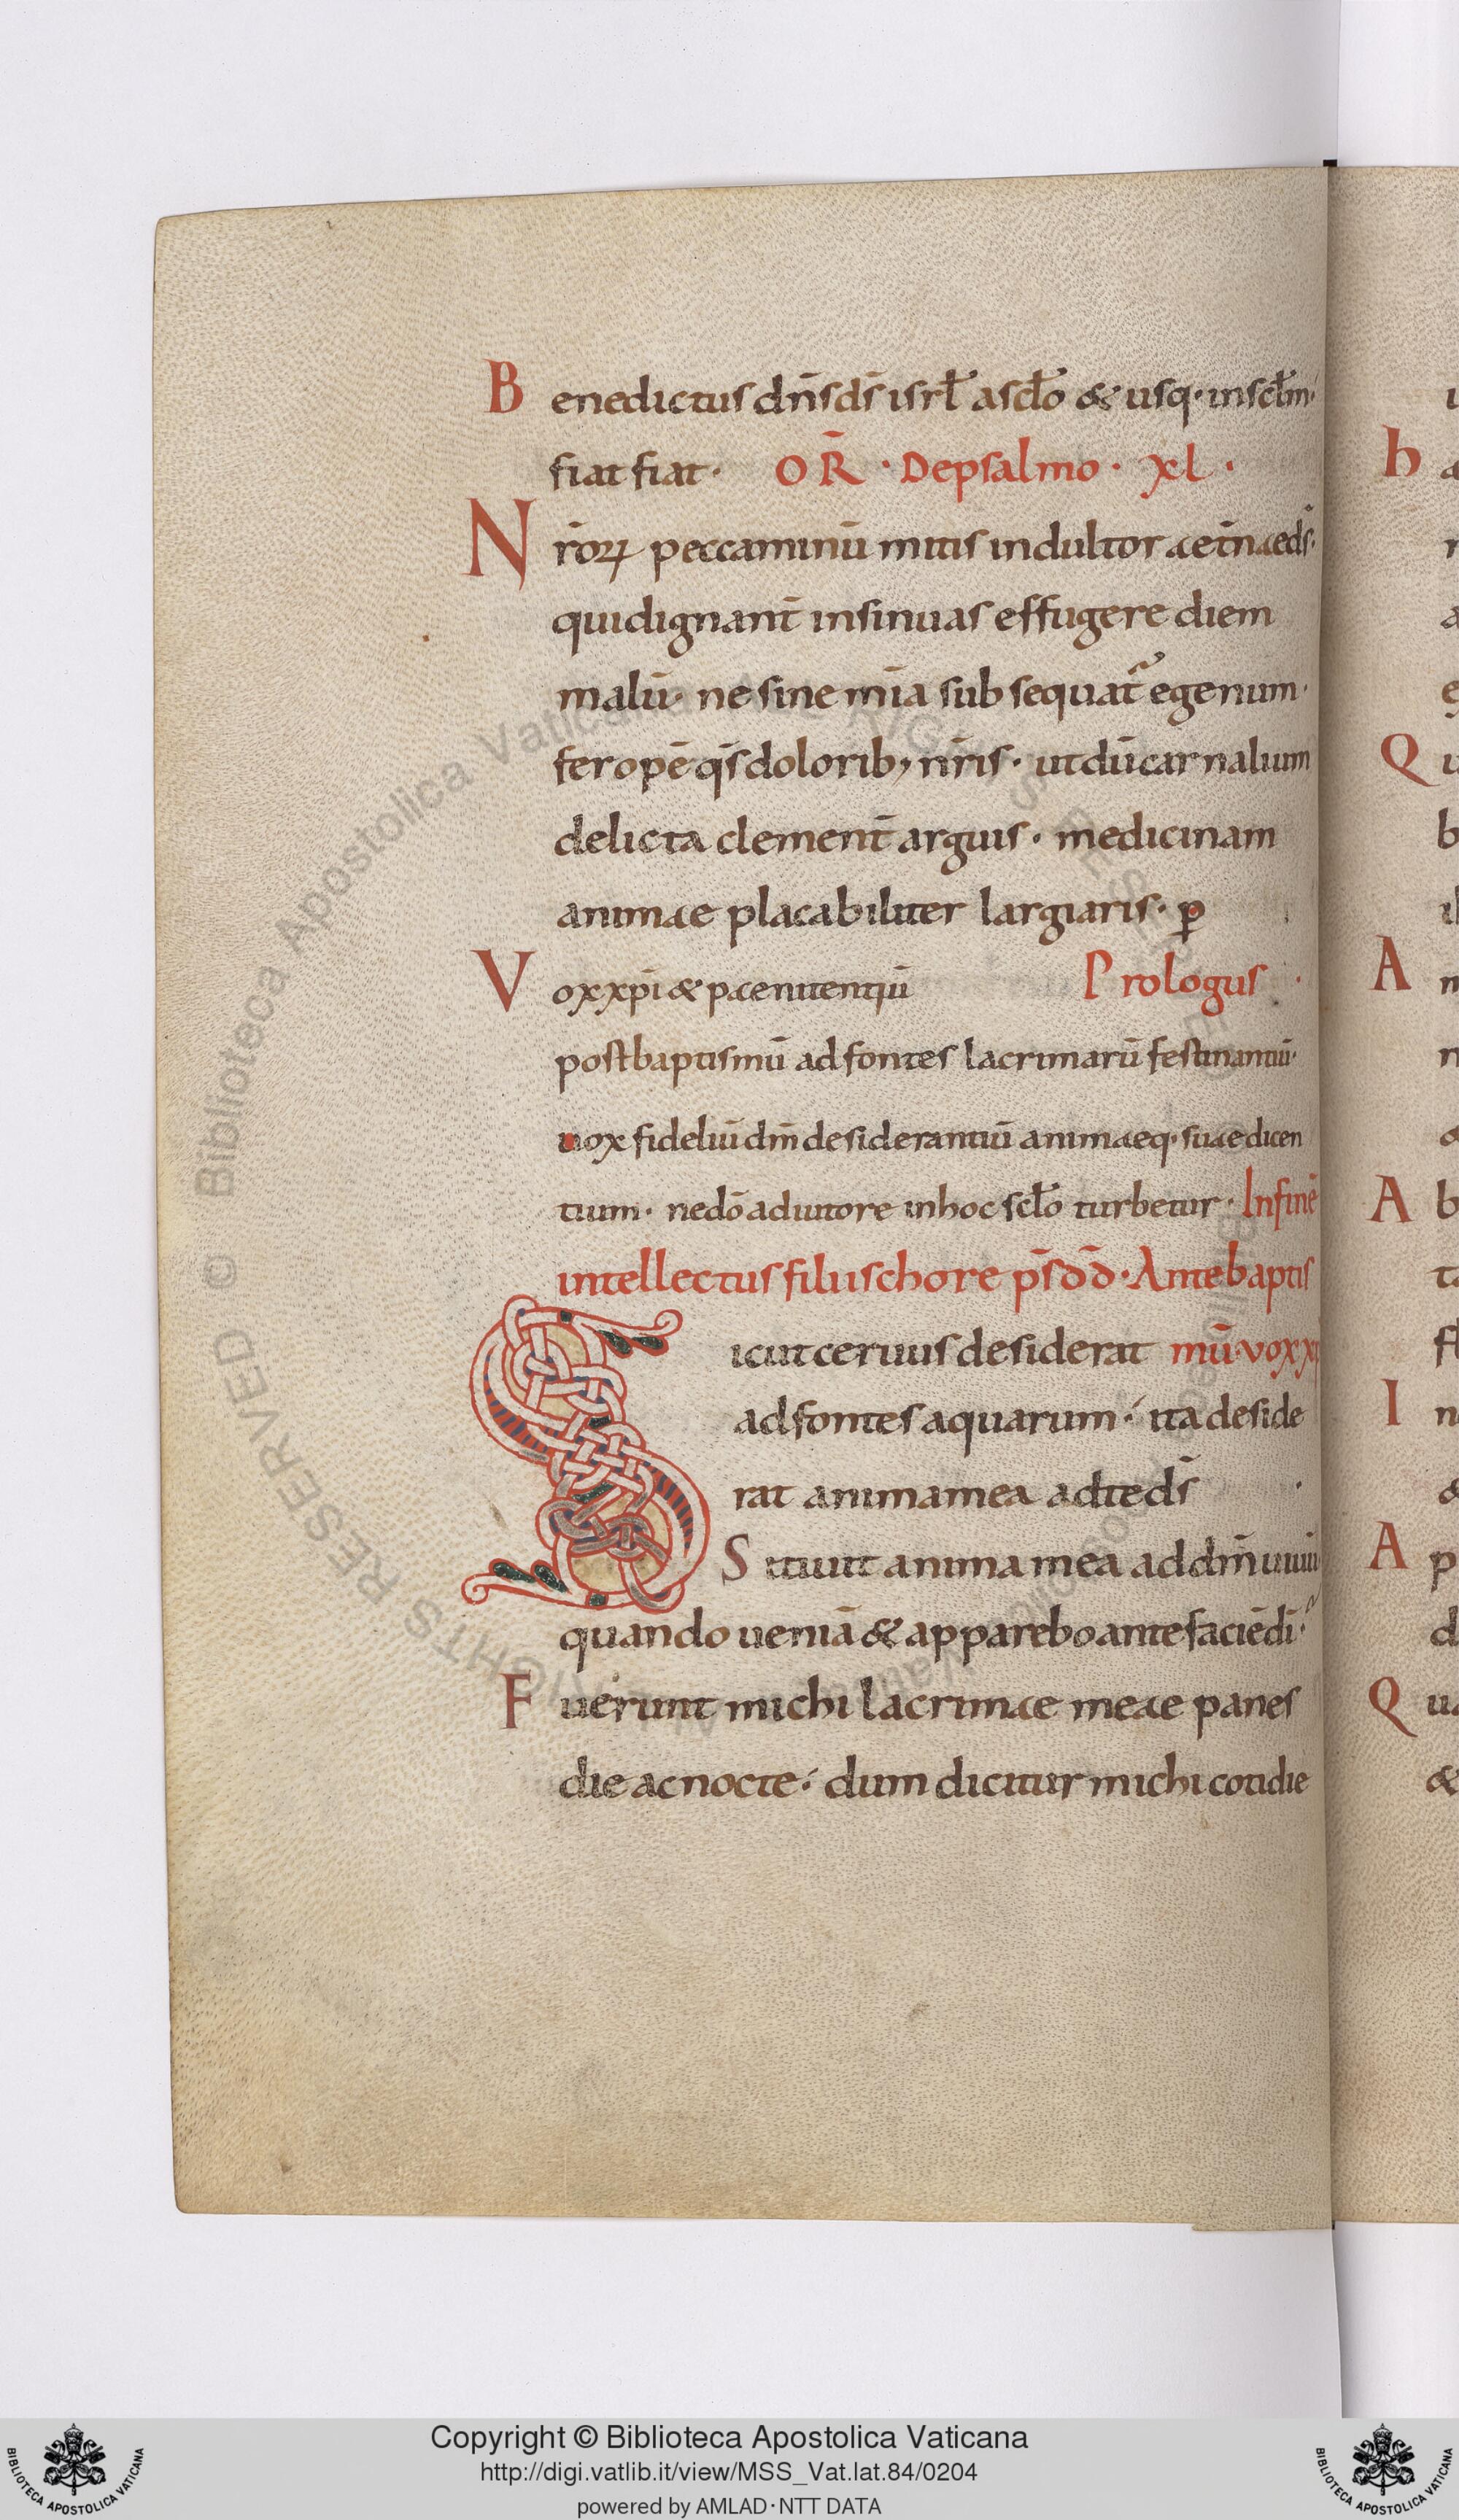 Benedictus dn̄s ds̄ isrł asclo & usq· insclm·
fiat fiat· OR̄ · De psalmo · xl ·
Nr̄oꝝ peccaminū mitis indultor aet̄nae ds̄·
qui dignant̄ insinuas effugere diem
malū· ne sine mīa subsequat̄ egenum·
fer opē qs̄ dolorib; nr̄is· ut dū carnalium
delicta clement̄ arguis· medicinam
animae placabiliter largiaris· ꝑ
Vox xp̄i & paenitentiū Prologus ·
post baptismū ad fontes lacrimarū festinantiū·
uox fideliū dm̄ desiderantiū animaeq· suae dicen
tium· ne dō adiutore in hoc scło turbetur· In finē
intellectus filiis chore ps̄ dd̄· Ante baptis
Sicut ceruus desiderat mū· vox xp̄i
ad fontes aquarum· ita deside
rat anima mea ad te ds̄ ·
Sitiuit anima mea ad dm̄ uiuū
quando ueniā & apparebo ante faciē dī·
Fuerunt michi lacrimae meae panes
die ac nocte· dum dicitur michi cotidie
h
Q
b
A
A
I
A
Q
&
Copyright © Biblioteca Apostolica Vaticana
http://digi.vatlib.it/view/MSS_Vat.lat.84/0204
powered by AMLAD·NTT DATA
BIBLIOTECA APOSTOLICA VATICANA
BIBLIOTECA APOSTOLICA VATICANA